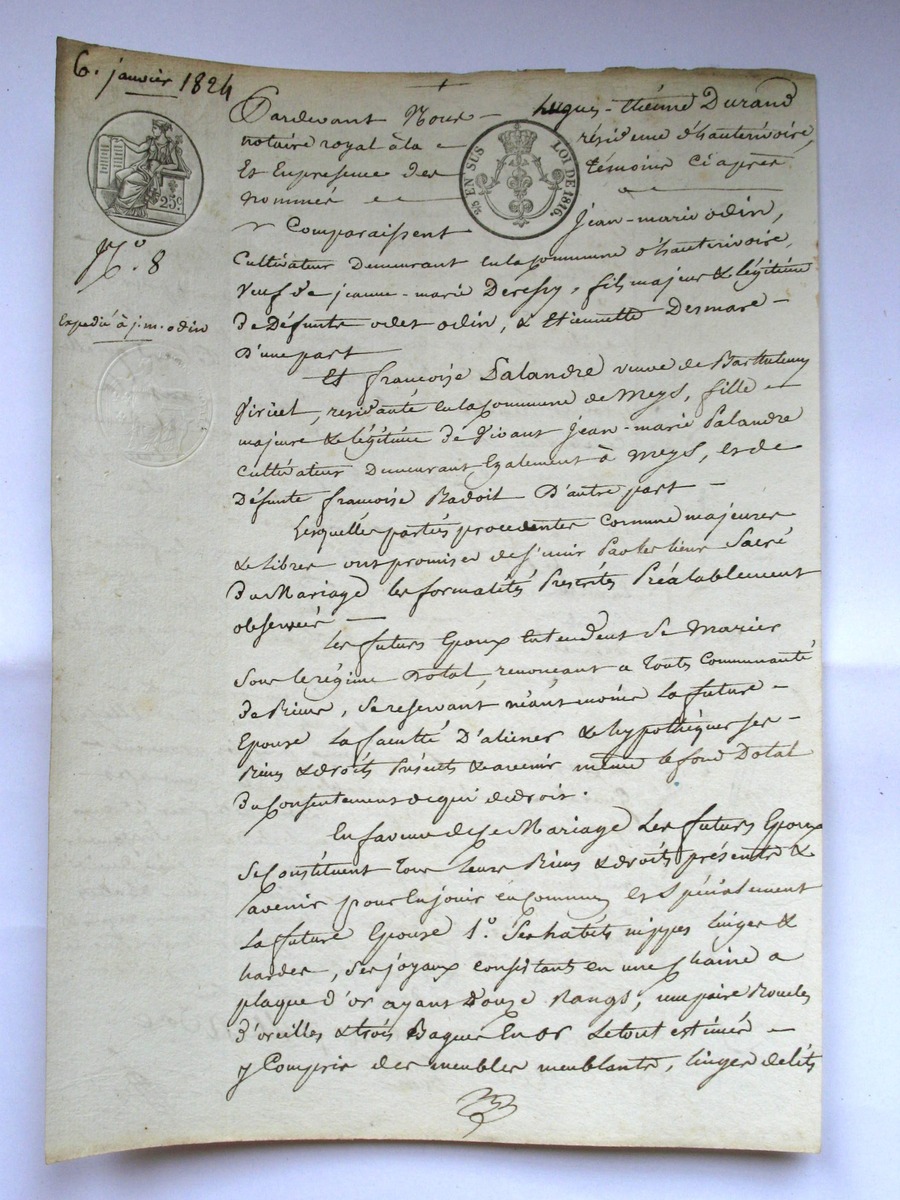 6. janvier 1824
Pardevant Nous hugues-étienne Durand
notaire royal à la résidence d'hauterivoire,
Et En presence des témoins Ci après
Nommés
25c.
25 EN SUS LOI DE 1816.
N.o 8
Expedié à j. m. odin
Comparaissent Jean-marie odin,
Cultivateur Demeurant en la Commune d'hauterivoire,
Veuf de jeanne-marie, fils majeur & légitime
de Défunts odet odin, & Etiennette Desmare
D'une part
Et françoise Palandre veuve de Barthelemy
Viricel, residante en la Commune de Meys, fille
majeure & légitime de Vivant Jean-marie Palandre
Cultivateur Demeurant Egalement à Meys, et de
Défunte françoise Badoit D'autre part
Lesquelles parties procedantes Comme majeures
& Libres ont promises de s'unir Par les liens Sacré
Du Mariage les formalités Prescrites Préalablement
observeés
Les futurs Epoux Entendent Se Marier
Sous le régime Dotal, renonçant a Toute Communauté
de Biens, Se reservant néantmoins La future
Epouse La faculté D'aliener & hypothéquer ses
Biens & droits Présents & avenir même le fond Dotal
Du Consentement de qui de droit.
En faveur de Ce Mariage Les futurs Epoux
Se Constituent Tous Leurs Biens & droits présents &
avenir pour En jouir en Commun et Spécialement
La future Epouse 1.o Ses habits nippes linges &
hardes, Ses joyaux consistants en une Chaine a
plaque d'or ayant Douze Rangs, une paire Boucles
d'oreilles & trois Bagues En or Le tout estimés
y Compris des meubles meublants, linges de lits